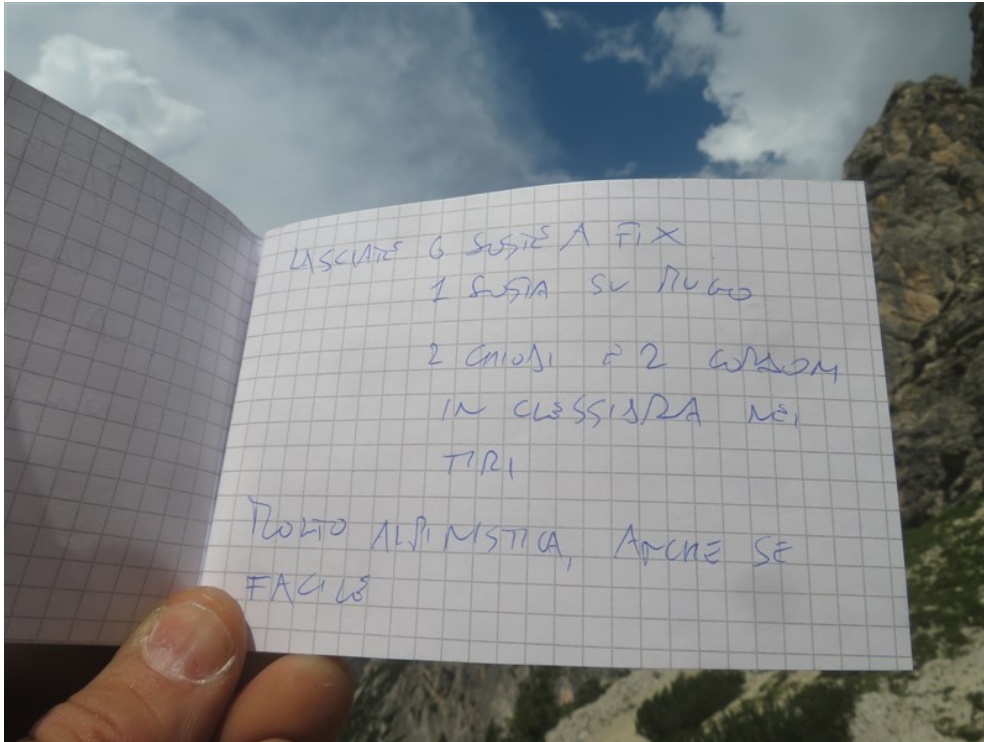 LASCIATE 6 SOSTE A FIX
1 SOSTA SU MUGO
2 CHIODI E 2 CORDONI
IN CLESSIDRA NEI
TIRI
MOLTO ALPINISTICA, ANCHE SE
FACILE